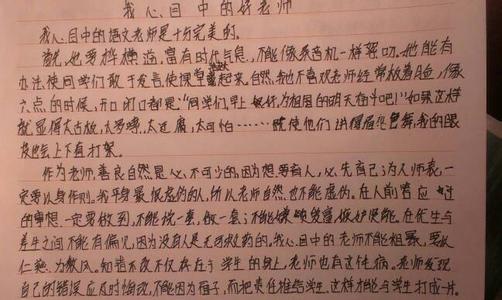 我心目中的好老师
我心目中的语文老师是十分完美的。
首先,他要桦横溢,富有时代气息,不能像录音机一样絮叨。他能有
办法使同学们敢于发言,使课堂起来。自然,我也不喜欢老师经常板着脸,像
六点的时候,开口闭口都是:"同学们早上好,为祖国的明天奋斗吧!"如果这样
就显得太古板,太罗嗦,太迂腐,太可怕……使他们讲得眉飞色舞,我的眼
皮也会上下直打架。
作为老师,善良自然是必不可少的,因为想要育人,必先自己为人师表,一
定要以身作则。我平身最恨虚伪的人,所以老师自然也不能虚伪。在人前答应过
的事想一定要做到,不能说一套,做一套;不能
差生之间不能有偏见,因为没有人是无可救药的。我心目中的老师不能粗暴,要以
仁慈为教风。知错不改不仅存在于学生的身上,老师也有这传病。老师发现
自己的错误应及时悔改,不能因为面子,而把责任推给学生,这样才能与学生打成一片。